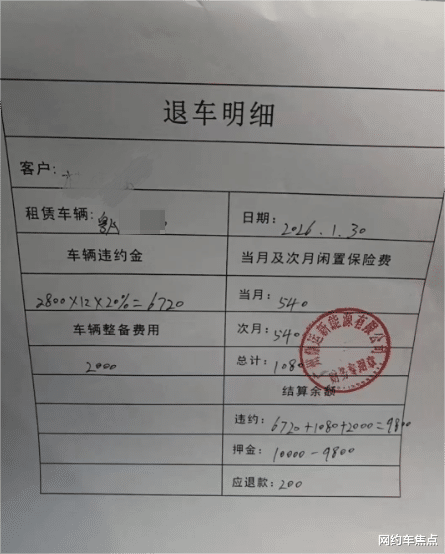 退车明细
客户:
租赁车辆: 粤A
日期: 2026.1.30
车辆违约金
当月及次月闲置保险费
2800×12×20%=6720
当月: 540
车辆整备费用
次月: 540
2000
总计: 1080
结算余额
违约: 6720+1080+2000=9800
押金: 10000-9800
应退款: 200
运新能源有限公司
财务专用章
网约车焦点